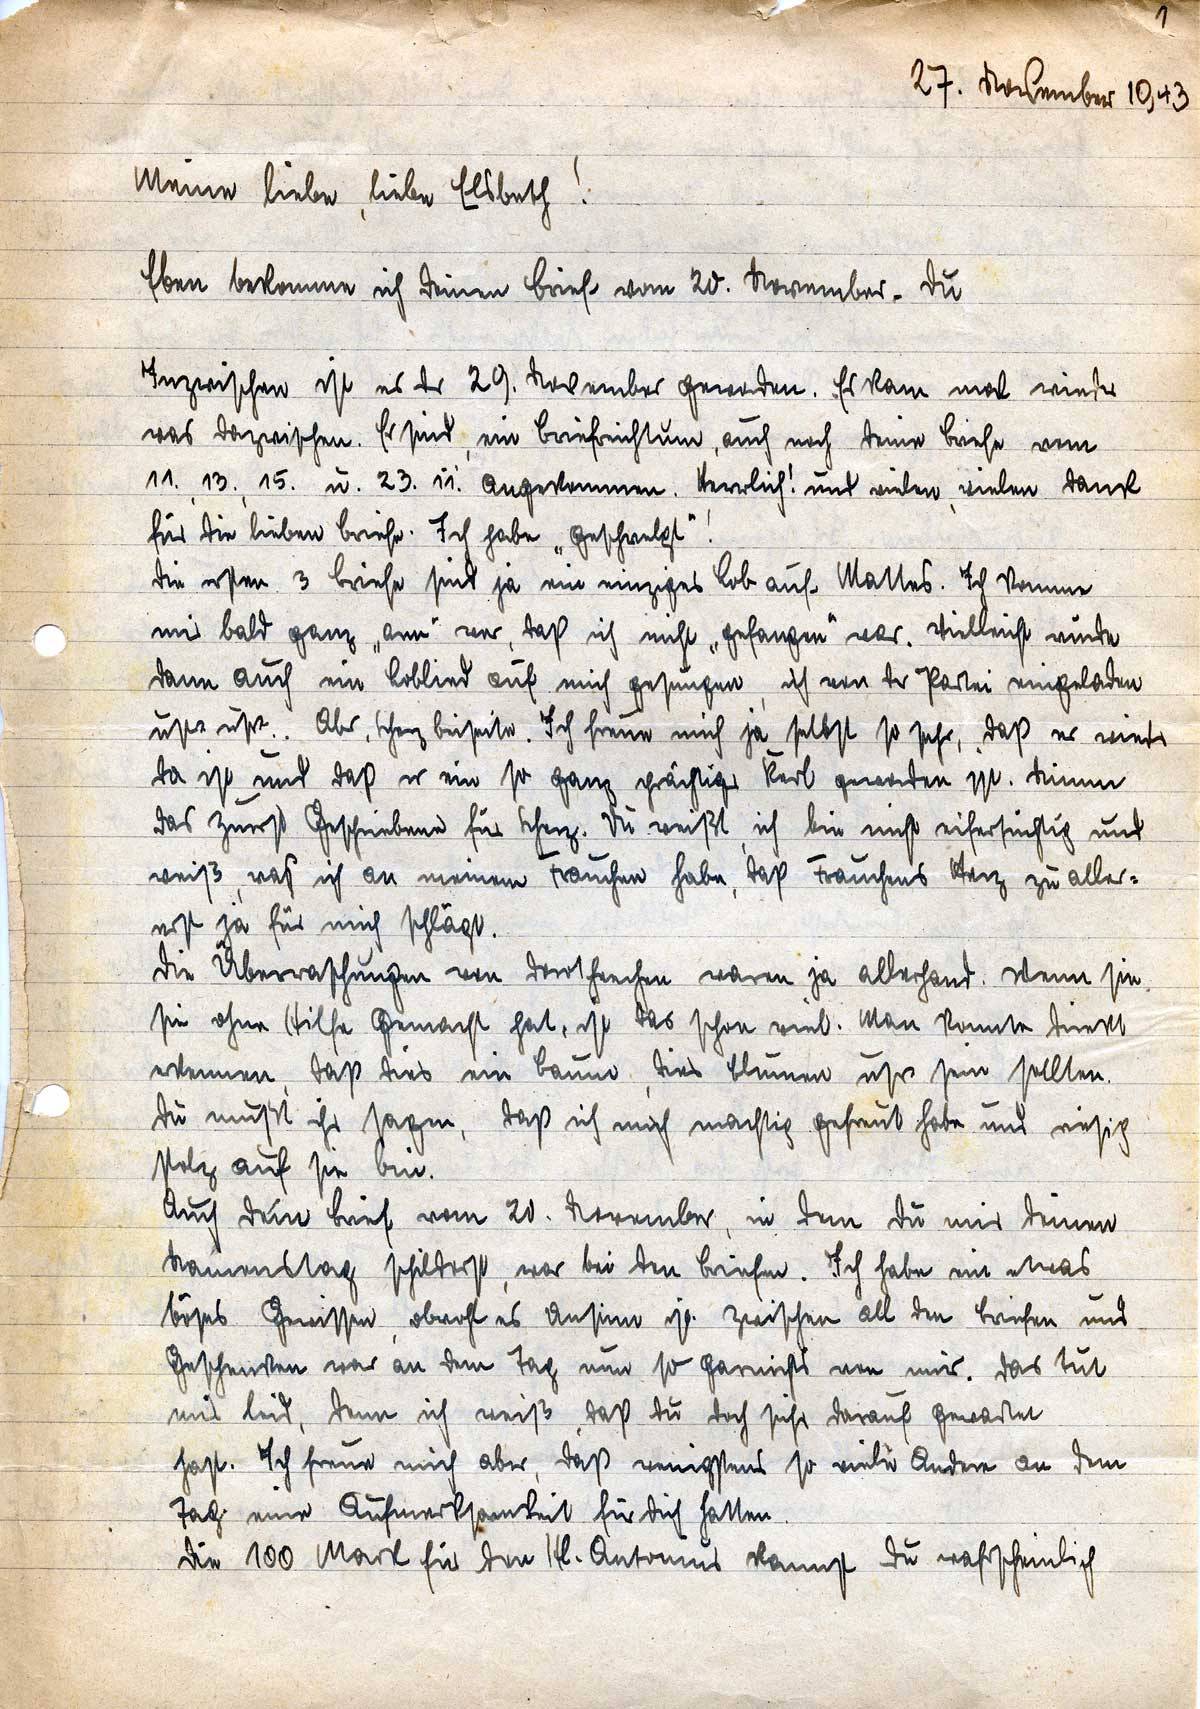 1
27. November 1943
Meine liebe, liebe Elsbeth!
Eben bekomme ich Deinen Brief vom 20. November. Du
Inzwischen ist es der 29. November geworden. Es kam mal wieder
was dazwischen. Es sind, ein Briefreichtum, auch noch Deine Briefe vom
11., 13., 15. u. 23. 11. angekommen. Herrlich! und vielen, vielen Dank
für die lieben Briefe. Ich habe „geschwelgt"!
Die ersten 3 Briefe sind ja ein einziges Lob auf Mattes. Ich komme
mir bald ganz „arm" vor, daß ich nicht „gefangen" war. Vielleicht würde
dann auch ein Loblied auf mich gesungen, ich von der Partei eingeladen
usw. usw.. Aber, Scherz beiseite. Ich freue mich ja selbst so sehr, daß er wieder
da ist und daß er ein so ganz prächtiger Kerl geworden ist. Nimm
das zuerst Geschriebene für Scherz. Du weißt, ich bin nicht eifersüchtig und
weiß, was ich an meinem Frauchen habe, daß Frauchens Herz zu aller-
erst ja für mich schlägt.
Die Überraschungen von Dorotheechen waren ja allerhand. Wenn sie
sie ohne Hilfe gemacht hat, ist das schon viel. Man konnte direkt
erkennen, daß dies ein Baum, dies Blumen usw sein sollten.
Du mußt ihr sagen, daß ich mich mächtig gefreut habe und riesig
stolz auf sie bin.
Auch Dein Brief vom 20. November, in dem Du mir Deinen
Namenstag schilderst, war bei den Briefen. Ich habe ein etwas
böses Gewissen, obwohl es Unsinn ist. Zwischen all den Briefen und
Geschenken war an dem Tag nun so garnichts von mir. Das tut
mir leid, denn ich weiß, daß Du doch sehr darauf gewartet
hast. Ich freue mich aber, daß wenigstens so viele Andere an dem
Tag eine Aufmerksamkeit für Dich hatten.
Die 100 Mark für den Hl. Antonius kannst Du wahrscheinlich